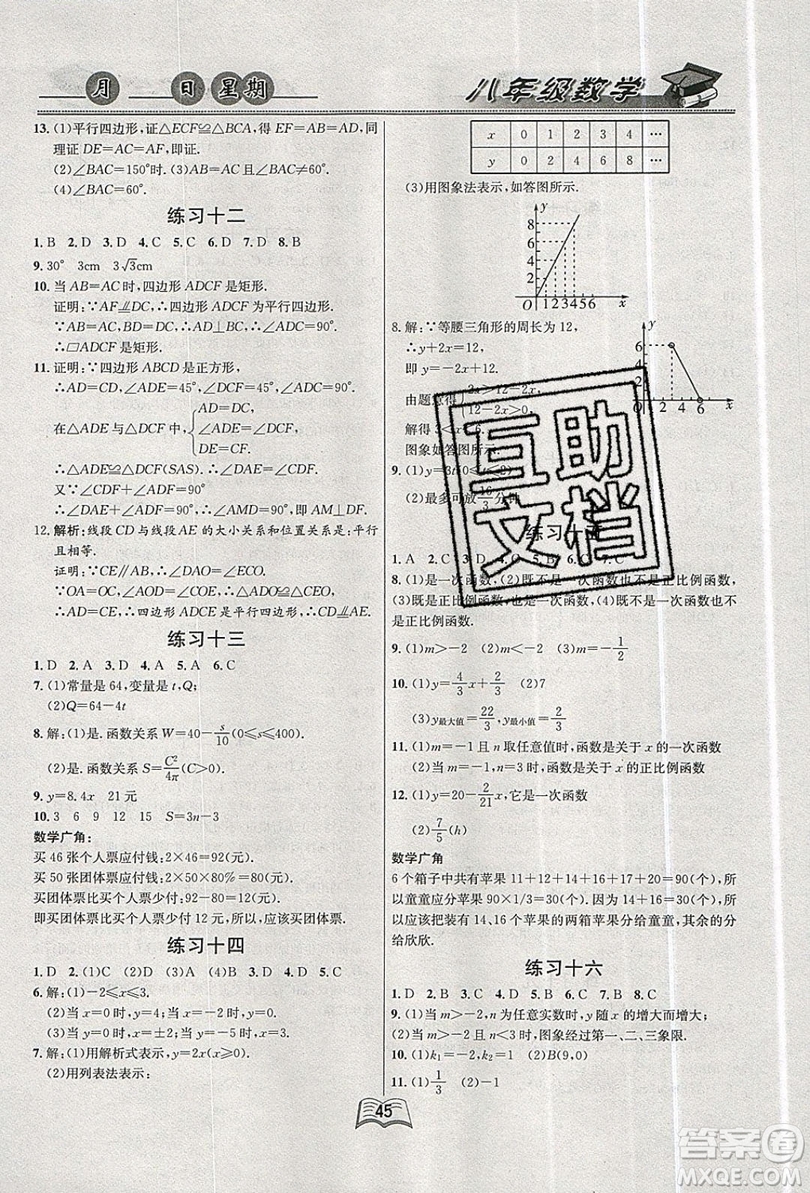 月 日 星期
八年级数学
13. (1)平行四边形,证△ECF≌△BCA,得 EF=AB=AD,同
理证 DE=AC=AF,即证.
(2)∠BAC=150°时. (3)AB=AC 且∠BAC≠60°.
(4)∠BAC=60°.
练习十二
1. B 2. D 3. D 4. C 5. C 6. D 7. D 8. B
9. 30° 3cm 3√3cm
10. 当 AB=AC 时,四边形 ADCF 是矩形.
证明:∵AF⫽DC,∴四边形 ADCF 为平行四边形.
∵AB=AC,BD=DC,∴AD⊥BC,∴∠ADC=90°.
∴□ADCF 是矩形.
11. 证明:∵四边形 ABCD 是正方形,
∴AD=CD,∠ADE=45°,∠DCF=45°.
在△ADE 与△DCF 中{AD=DC,
∠ADE=∠DCF,
DE=CF.
∴△ADE≌△DCF(SAS). ∴∠DAE=∠CDF.
又∵∠CDF+∠ADF=90°
∴∠DAE+∠ADF=90°,∴∠AMD=90°,即 AM⊥DF.
12. 解析:线段 CD 与线段 AE 的大小关系和位置关系是:平行
且相等.
证明:∵CE∥AB,∴∠DAO=∠ECO.
∵OA=OC,∴△ADO≌△CEO.
∴AD=CE,∴四边形 ADCE 是平行四边形,∴CD⫽AE.
练习十三
1. D 2. A 3. D 4. A 5. A 6. C
7. (1)常量是 64,变量是 t,Q;
(2)Q=64-4t
8. 解:(1)是. 函数关系 W=40-s/10(0≤s≤400).
(2)是. 函数关系 S=C²/4π(C>0).
9. y=8.4x 21元
10. 3 6 9 12 15 S=3n-3
数学广角:
买 46 张个人票应付钱:2×46=92(元).
买 50 张团体票应付钱:2×50×80%=80(元).
买团体票比买个人票少付钱:92-80=12(元).
即买团体票比买个人票少付 12 元,所以,应该买团体票.
练习十四
1. D 2. D 3. (1)C (2)D (3)A (4)B 4. C 5. C
6. 解:(1)-2≤x≤3.
(2)当 x=0时,y=4;当 x=3时,y=-5.
(3)当 y=0时,x=±2;当 y=3时,x=±1.
7. 解:(1)用解析式表示,y=2x(x≥0).
(2)用列表法表示:
x 0 1 2 3 4 …
y 0 2 4 6 8 …
(3)用图象法表示,如答图所示.
y
8
6
4
2
O 1 2 3 4 5 6 x
8. 解:∵等腰三角形的周长为 12,
∴y+2x=12,
即 y=-2x+12.
由题意得{2x>12-2x,
12-2x>0,
解得 3<x<6.
图象如答图所示.
y
6
4
2
O 2 4 6 x
9. (1)y=
(2)最多可放16/3分钟
练习十五
1. A 2. C 5. B 6. C 7. A
8. (1)是一次函数;(2)既不是一次函数,也不是正比例函数;
(3)既是正比例函数,也是一次函数;(4)既不是一次函数,也不
是正比例函数.
9. (1)m>-2 (2)m<-2 (3)m=-1/2
10. (1)y=4/3x+2/3 (2)7
(3)y最大值=22/3,y最小值=2/3
11. (1)m=-1 且 n 取任意值时,函数是关于 x 的一次函数
(2)当 m=-1 且 n=2时,函数是关于 x 的正比例函数
12. (1)y=20-2/21x,它是一次函数
(2)7/5(h)
数学广角
6 个箱子中共有苹果 11+12+14+16+17+20=90(个),所
以童童应分苹果 90×1/3=30(个). 因为 14+16=30(个),
所以应该把装有 14、16 个苹果的两箱苹果分给童童,其余的分
给欣欣.
练习十六
1. D 2. B 3. C 4. C 5. D 6. B 7. B 8. C
9. (1)当 m>-2,n 为任意实数时,y 随 x 的增大而增大;
(2)当 m>-2 且 n<3 时,图象经过第一、二、三象限.
10. (1)k₁=-1,k₂=2 (2)B(9,0)
11. (1)1/3 (2)-1
45
互助
文档
答案圈
MXQE.COM